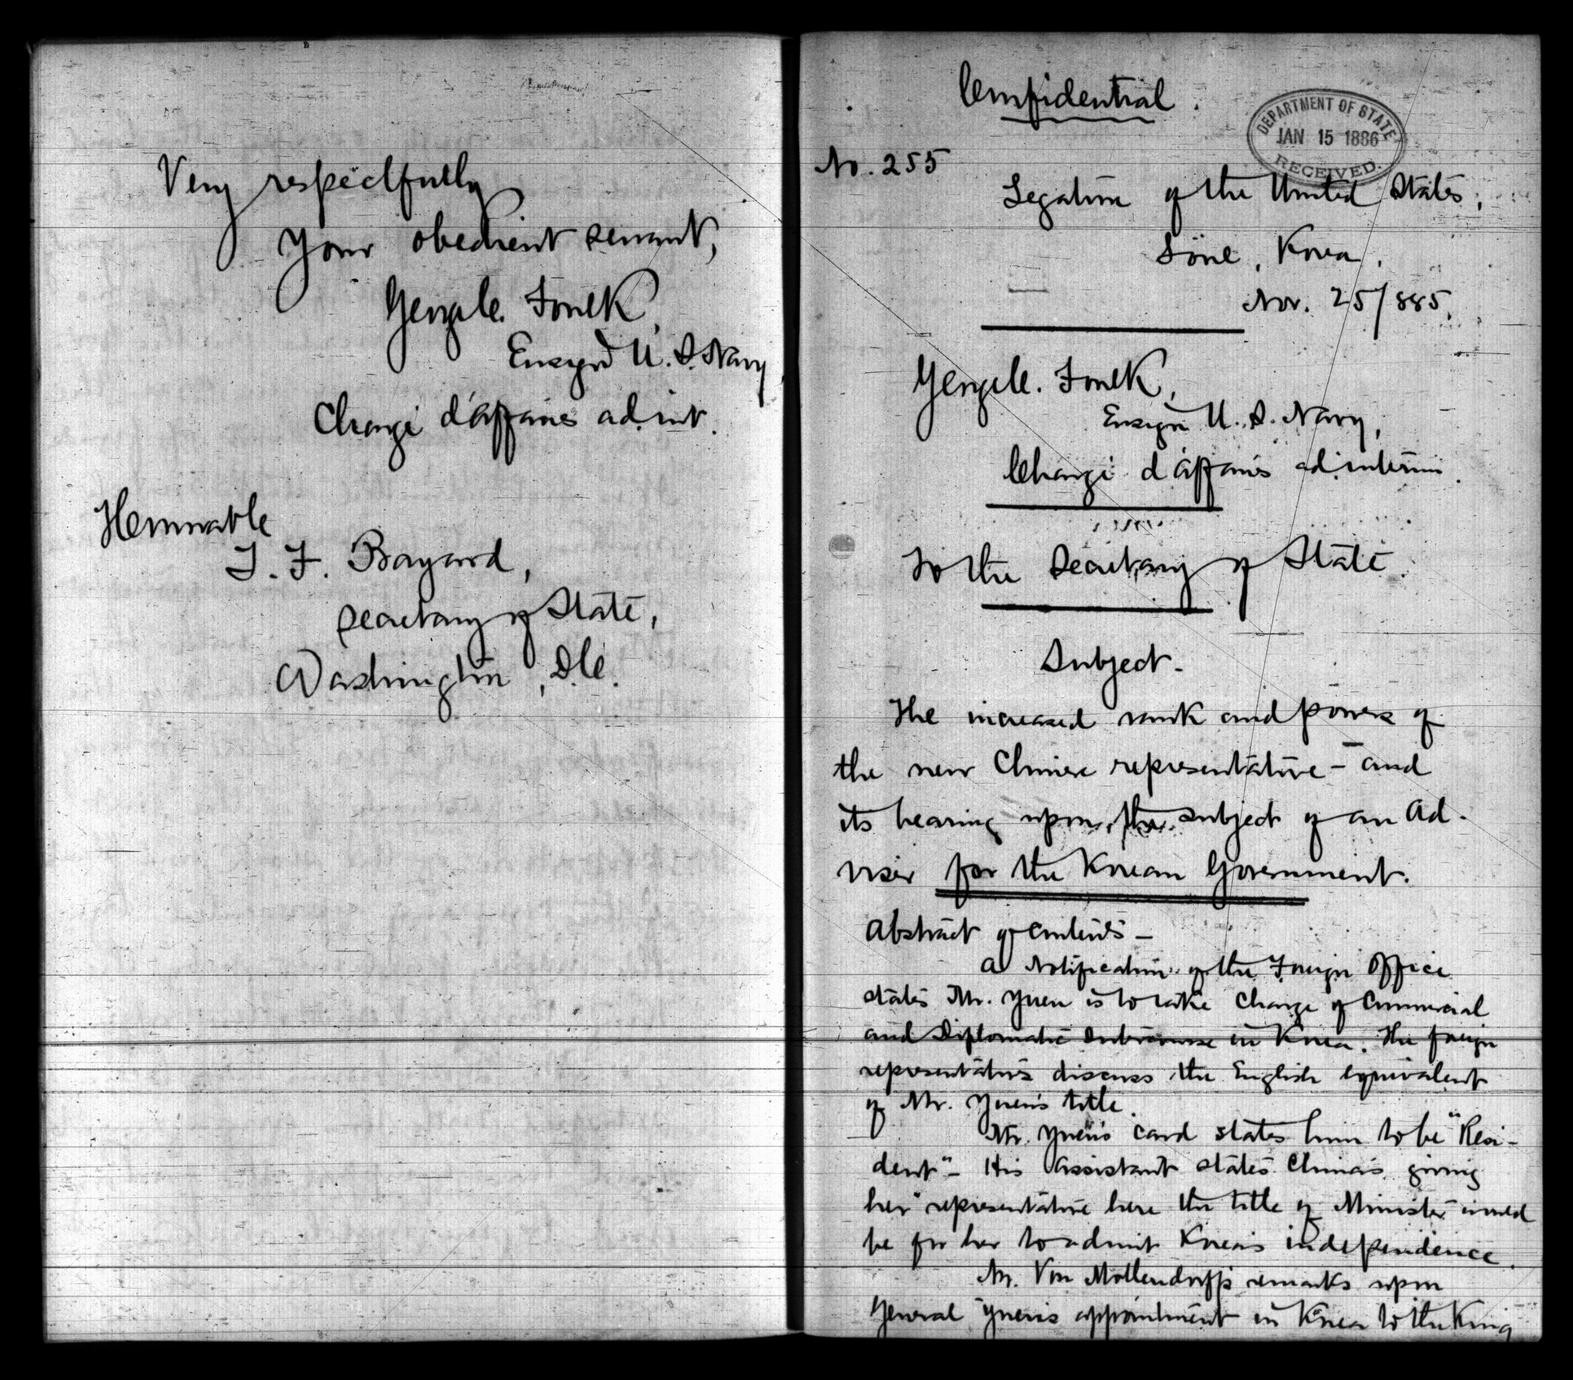 Very respectfully
Your obedient servant,
George C. Foulk,
Ensign U. S. Navy,
Chargé d'affaires ad. int.
Honorable
T. F. Bayard,
Secretary of State,
Washington, D.C.
Confidential.
DEPARTMENT OF STATE
JAN 15 1886
RECEIVED.
No. 255
Legation of the United States,
Söul, Korea,
Nov. 25/885.
George C. Foulk,
Ensign U. S. Navy,
Chargé d'affaires ad interim.
To the Secretary of State.
Subject.
The increased rank and powers of
the new Chinese representative – and
its bearing upon the subject of an Ad-
viser for the Korean Government.
Abstract of contents –
A Notification of the Foreign Office
states Mr. Yuen is to take charge of Commercial
and Diplomatic Intercourse in Korea. The foreign
representatives discuss the English equivalent
of Mr. Yuen's title.
Mr. Yuen's card states him to be "Resi-
dent" – His assistant states China's giving
her representative here the title of Minister would
be for her to admit Korea's independence.
Mr. Von Mollendorff's remarks upon
General Yuen's appointment in Korea to the King